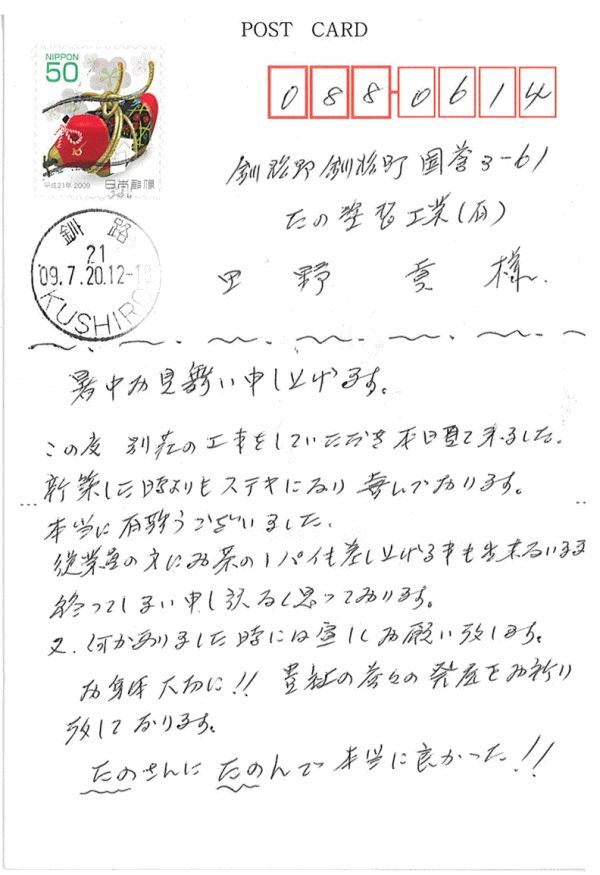 POST CARD
NIPPON
50
平成21年 2009 日本郵便
088-0614
釧路
21
09.7.20.12-18
KUSHIRO
釧路郡釧路町国誉3-61
たの塗装工業(有)
田野 様
暑中お見舞い申し上げます。
この度 別荘の工事をしていただき本日見て来ました。
新築した時よりもステキになり喜んでおります。
本当に有難うございました。
従業員の方にお茶の1パイも差し上げる事も出来ないまま
終ってしまい申し訳なく思っております。
又、何かありました時には宜しくお願い致します。
お身体大切に!! 貴社の益々の発展をお祈り
致しております。
たのさんに たのんで 本当に良かった!!